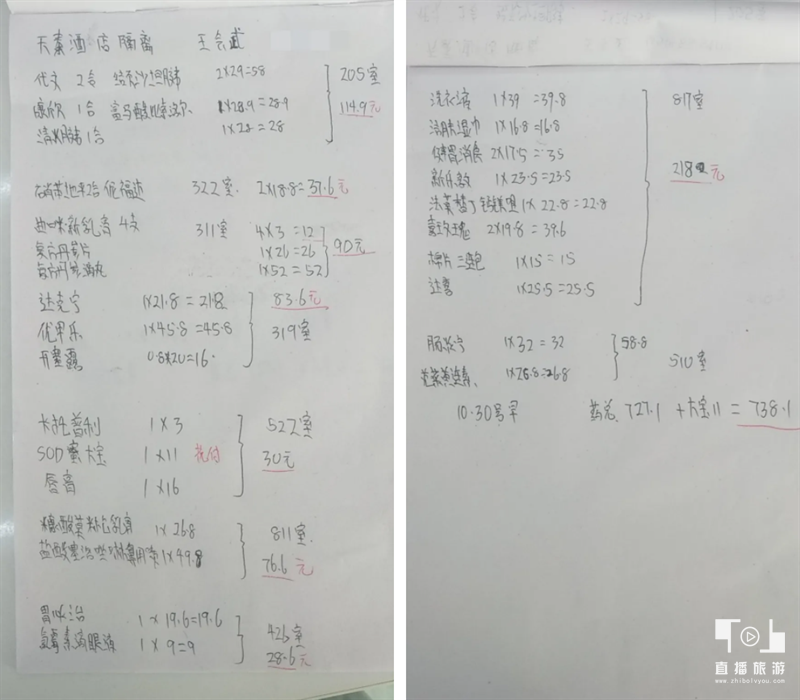 天素酒店隔离 王会武
代文 2合 缬沙坦胶 2×29=58 205室
1合 富马酸比索洛尔 1×28.9=28.9 114.9元
1合 1×28=28
322室 2×18.8=37.6元
新乳膏 4支 311室 4×3=12
复方丹参片 1×26=26 90元
复方丹参滴丸 1×52=52
达克宁 1×21.8=21.8 83.6元
优甲乐 1×45.8=45.8 319室
开塞露 0.8×20=16
卡托普利 1×3 527室
SOD蜜大宝 1×11 30元
唇膏 1×16
糠酸莫米松乳膏 1×26.8 811室
盐酸赛洛唑啉鼻用 1×49.8 76.6元
胃必治 1×19.6=19.6 426室
氯霉素滴眼液 1×9=9 28.6元
洗衣液 1×39=39.8 817室
湿巾 1×16.8=16.8
健胃消食 2×17.5=35 218元
新乐敦 1×23.5=23.5
法莫替丁 1×22.8=22.8
2×19.8=39.6
棉片三包 1×15=15
达喜 1×25.5=25.5
肠炎宁 1×32=32 58.8
1×26.8=26.8 510室
10.30号军 药总727.1+大宝11=738.1
直播旅游
www.zhibolvyou.com